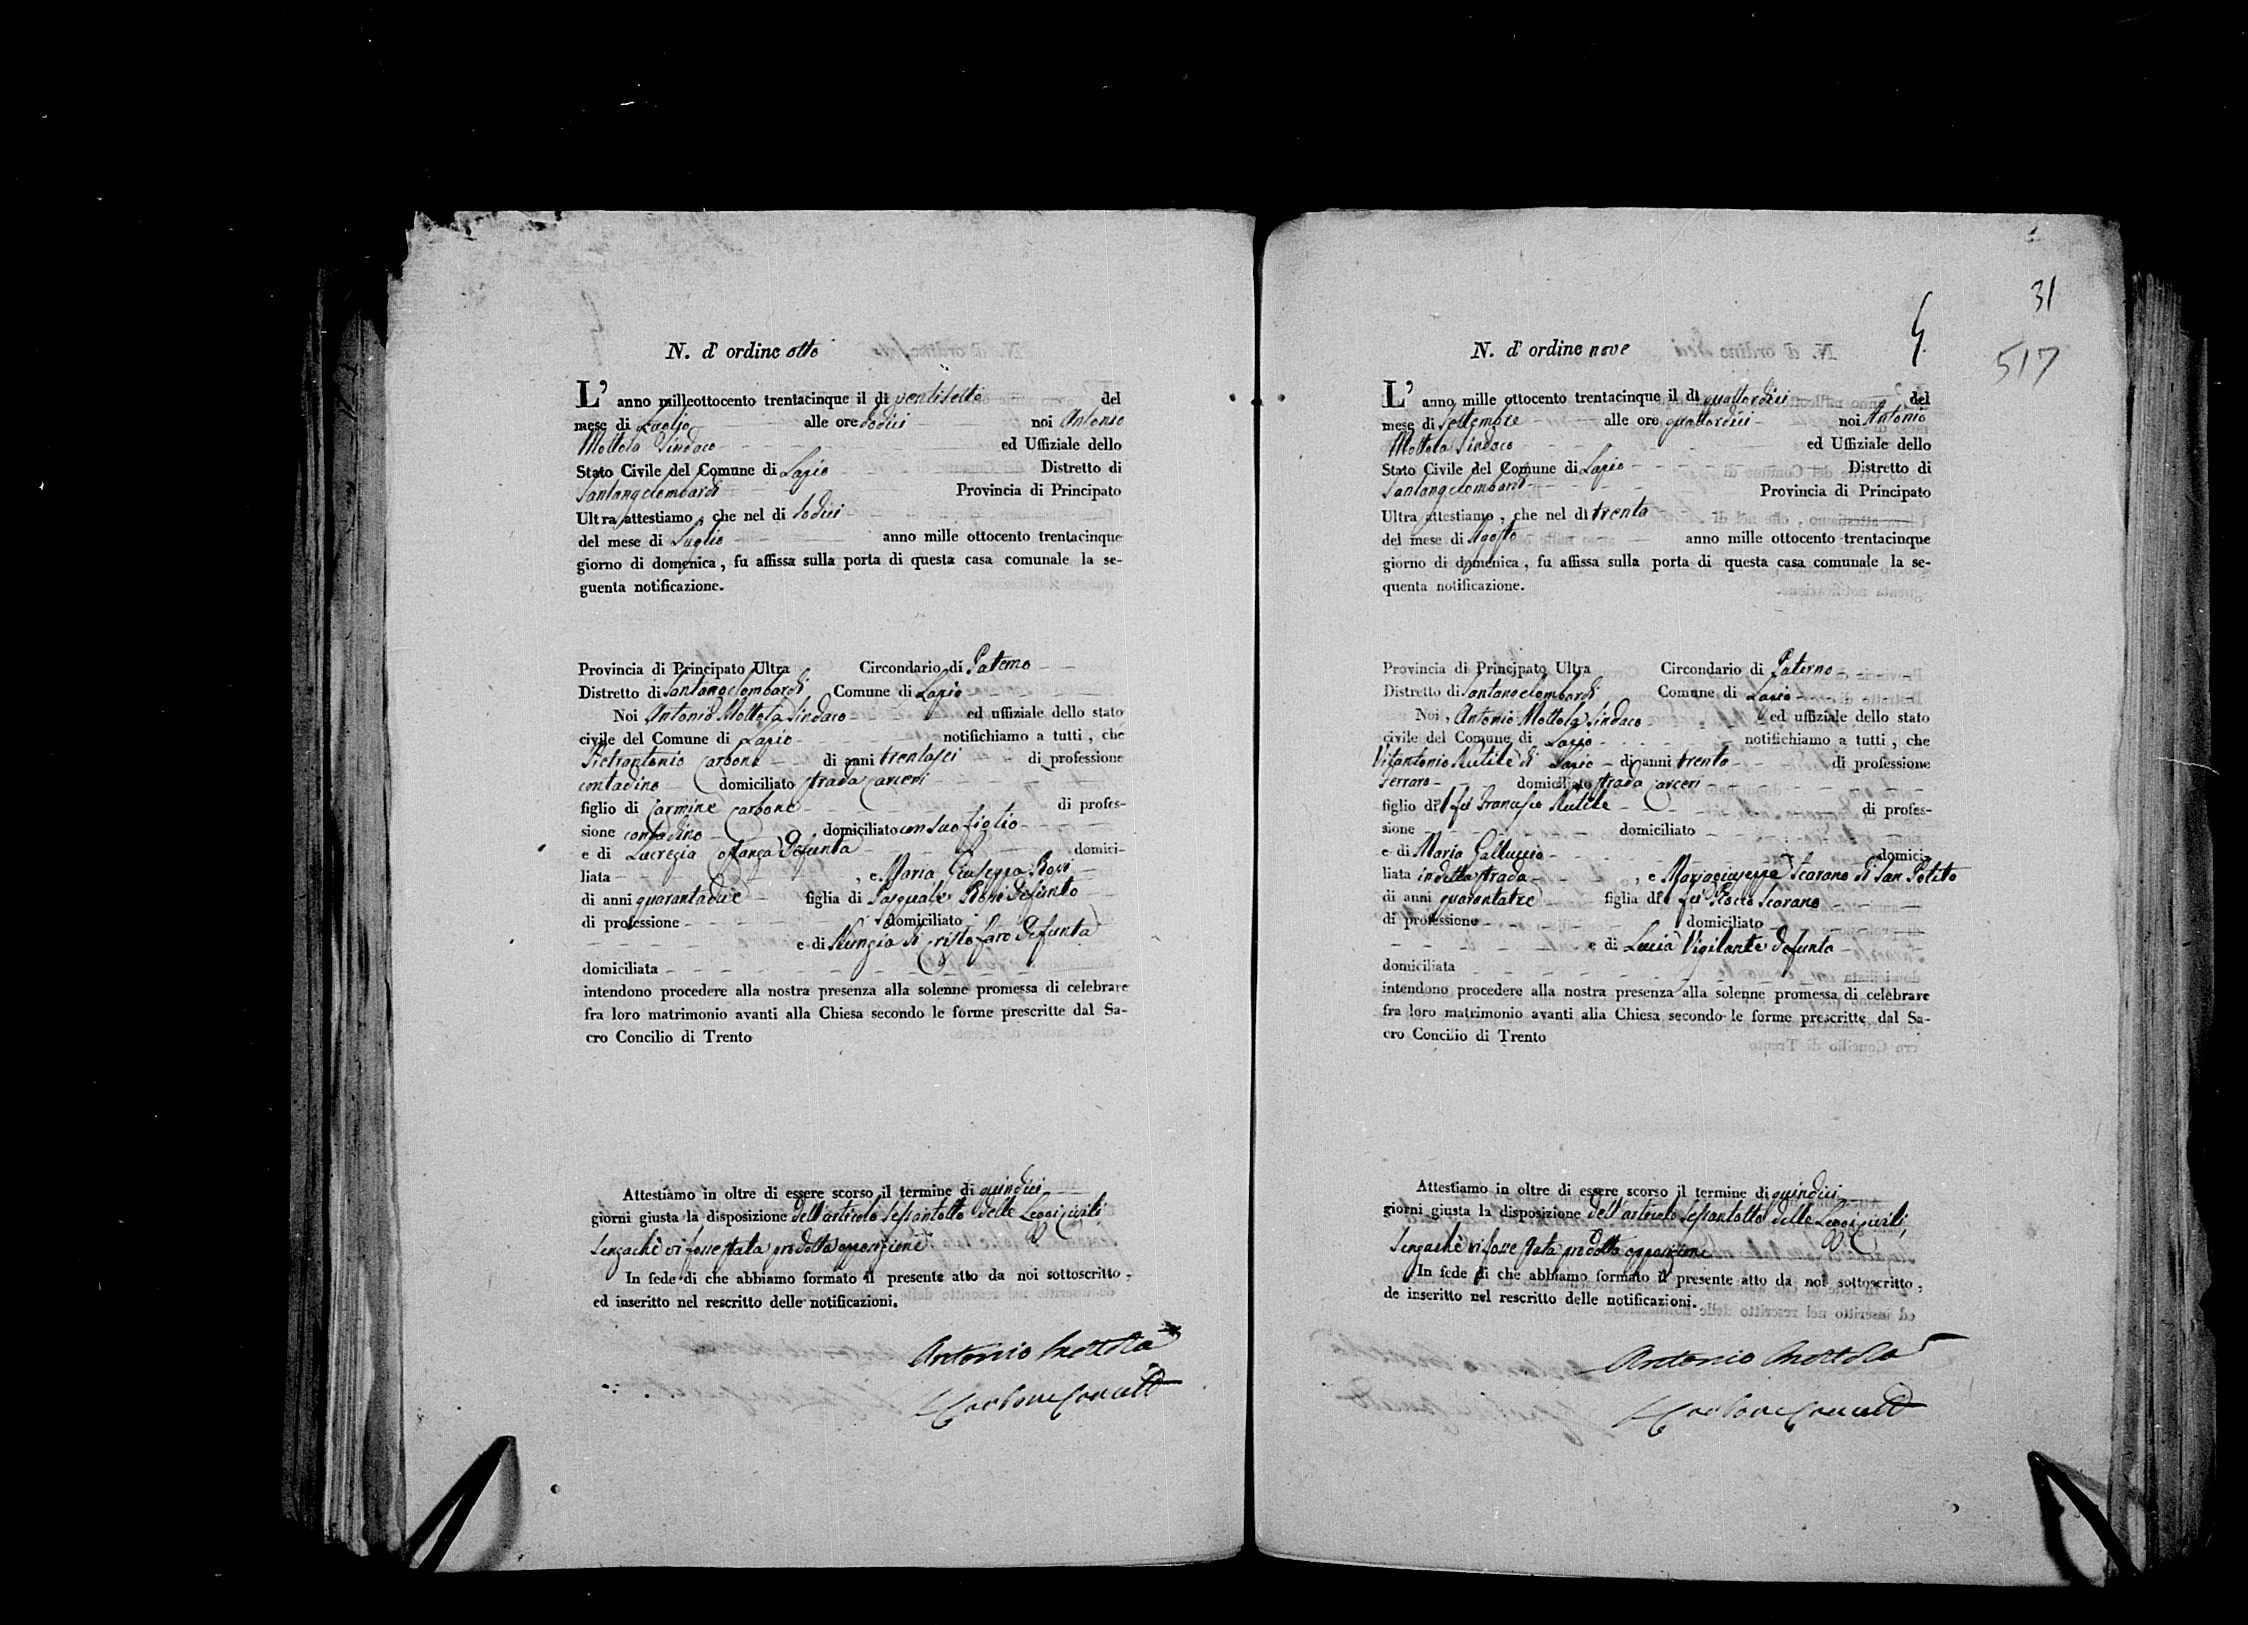 N. d' ordine otto
L' anno milleottocento trentacinque il dì ventisette del
mese di Luglio alle ore dodici noi Antonio
Mottola Sindaco ed Uffiziale dello
Stato Civile del Comune di Lapio Distretto di
Santangelombardi Provincia di Principato
Ultra attestiamo, che nel di dodici
del mese di Luglio anno mille ottocento trentacinque
giorno di domenica, fu affissa sulla porta di questa casa comunale la se-
guenta notificazione.
Provincia di Principato Ultra Circondario di Paterno
Distretto di Santangelombardi Comune di Lapio
Noi Antonio Mottola Sindaco ed uffiziale dello stato
civile del Comune di Lapio notifichiamo a tutti, che
Pietrantonio Carbone di anni trentasei di professione
contadino domiciliato strada Carceri
figlio di Carmine Carbone di profes-
sione contadino domiciliato con suo figlio
e di Lucrezia Costanza Defunta domici-
liata , e Maria Giuseppa Rossi
di anni quarantadue figlia di Pasquale Rossi Defunto
di professione domiciliato
e di Nunzia di Cristofaro Defunta
domiciliata
intendono procedere alla nostra presenza alla solenne promessa di celebrare
fra loro matrimonio avanti alla Chiesa secondo le forme prescritte dal Sa-
cro Concilio di Trento
Attestiamo in oltre di essere scorso il termine di quindici
giorni giusta la disposizione dell'articolo Sessantotto delle Leggi Civili
Senzachè vi fosse stata prodotta opposizione
In fede di che abbiamo formato il presente atto da noi sottoscritto,
ed inseritto nel rescritto delle notificazioni.
Antonio Mottola
31
517
N. d' ordine nove
L' anno mille ottocento trentacinque il dì quattordici del
mese di Settembre alle ore quattordici noi Antonio
Mottola Sindaco ed Uffiziale dello
Stato Civile del Comune di Lapio Distretto di
Santangelombardi Provincia di Principato
Ultra attestiamo, che nel di trenta
del mese di Agosto anno mille ottocento trentacinque
giorno di domenica, fu affissa sulla porta di questa casa comunale la se-
quenta notificazione.
Provincia di Principato Ultra Circondario di Paterno
Distretto di Santangelombardi Comune di Lapio
Noi, Antonio Mottola Sindaco ed uffiziale dello stato
civile del Comune di Lapio notifichiamo a tutti, che
Vitantonio Rutile di Lapio di anni trenta di professione
Ferraro domiciliato strada Carceri
figlio di fu Francesco Rutile di profes-
sione domiciliato
e di Maria Galluccio domici-
liata in detta strada , e Mariagiuseppa Scarano di San Potito
di anni quarantatre figlia di fu Rocco Scarano
di professione domiciliato
e di Lucia Vigilante defunta
domiciliata
intendono procedere alla nostra presenza alla solenne promessa di celebrare
fra loro matrimonio avanti alla Chiesa secondo le forme prescritte dal Sa-
cro Concilio di Trento
Attestiamo in oltre di essere scorso il termine di quindici
giorni giusta la disposizione dell'articolo Sessantotto delle Leggi Civili,
Senzachè vi fosse stata prodotta opposizione
In fede di che abbiamo formato il presente atto da noi sottoscritto,
de inseritto nel rescritto delle notificazioni.
Antonio Mottola